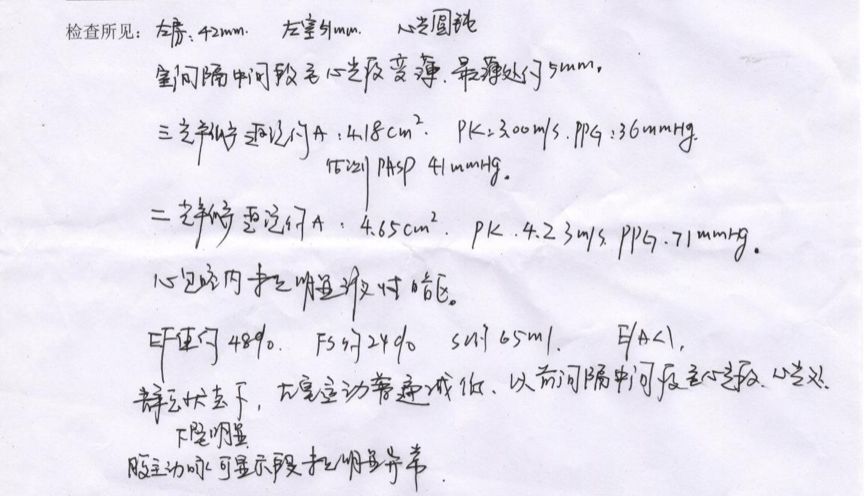 检查所见: 左房:42mm. 左室51mm. 心尖圆钝
室间隔中间段至心尖段变薄.最薄处约5mm.
三尖瓣 返流约A:4.18cm². PK:3.00m/s.PPG:36mmHg.
估测PASP 41mmHg.
二尖瓣 返流约A:4.65cm². PK.4.23m/s.PPG.71mmHg.
心包腔内未见明显液性暗区。
EF值约48%. FS约24% SV约65ml. E/A<1,
静息状态下,左室壁动普遍减低、以前间隔中间段至心尖段、心尖
下壁明显
腹主动脉可显示段未见明显异常.